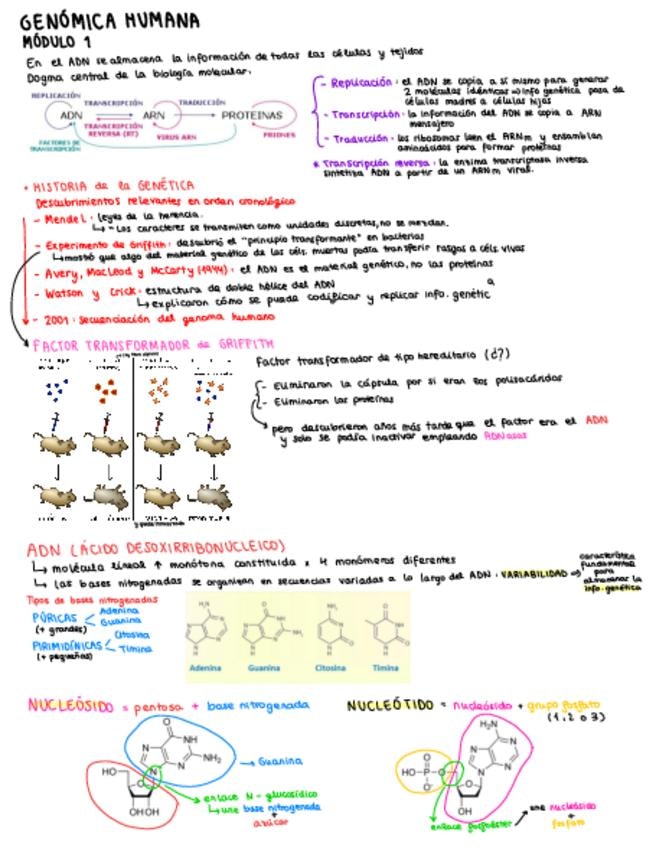 GENÓMICA HUMANA
MÓDULO 1
En el ADN se almacena la información de todas las células y tejidos
Dogma central de la biología molecular.
REPLICACIÓN
TRANSCRIPCIÓN
TRADUCCIÓN
ADN
ARN
PROTEINAS
TRANSCRIPCIÓN
REVERSA (RT)
VIRUS ARN
PRIONES
FACTORES DE
TRANSCRIPCIÓN
- Replicación: el ADN se copia a sí mismo para generar
2 moléculas idénticas → info genética pasa de
células madres a células hijas
- Transcripción: la información del ADN se copia a ARN
mensajero
- Traducción: los ribosomas leen el ARNm y ensamblan
aminoácidos para formar proteínas
* Transcripción reversa: la enzima transcriptasa inversa
sintetiza ADN a partir de un ARNm viral.
• HISTORIA de la GENÉTICA
Descubrimientos relevantes en orden cronológico
- Mendel: leyes de la herencia.
↳ "Los caracteres se transmiten como unidades discretas, no se mezclan.
- Experimento de Griffith: descubrió el "principio transformante" en bacterias
↳ mostró que algo del material genético de las céls. muertas podía transferir rasgos a céls. vivas
- Avery, MacLeod y McCarty (1944): el ADN es el material genético, no las proteínas
- Watson y Crick: estructura de doble hélice del ADN
↳ explicaron cómo se puede codificar y replicar info. genética
- 2001: secuenciación del genoma humano
FACTOR TRANSFORMADOR de GRIFFITH
Factor transformador de tipo hereditario (¿?)
- Eliminaron la cápsula por si eran los polisacáridos
- Eliminaron las proteínas
pero descubrieron años más tarde que el factor era el ADN
y solo se podía inactivar empleando ADNasas
ADN (ÁCIDO DESOXIRRIBONUCLEICO)
↳ molécula lineal ↑ monótona constituida x 4 monómeros diferentes
↳ las bases nitrogenadas se organizan en secuencias variadas a lo largo del ADN: VARIABILIDAD ⇒
característica
fundamental
para
almacenar la
info. genética
Tipos de bases nitrogenadas
PÚRICAS
(+ grandes)
Adenina
Guanina
PIRIMIDÍNICAS
(+ pequeñas)
Citosina
Timina
Adenina
Guanina
Citosina
Timina
NUCLEÓSIDO = pentosa + base nitrogenada
Guanina
enlace N-glucosídico
↳ une base nitrogenada
+
azúcar
NUCLEÓTIDO = nucleósido + grupo fosfato
(1, 2 o 3)
enlace fosfoéster
une nucleósido
+
fosfato